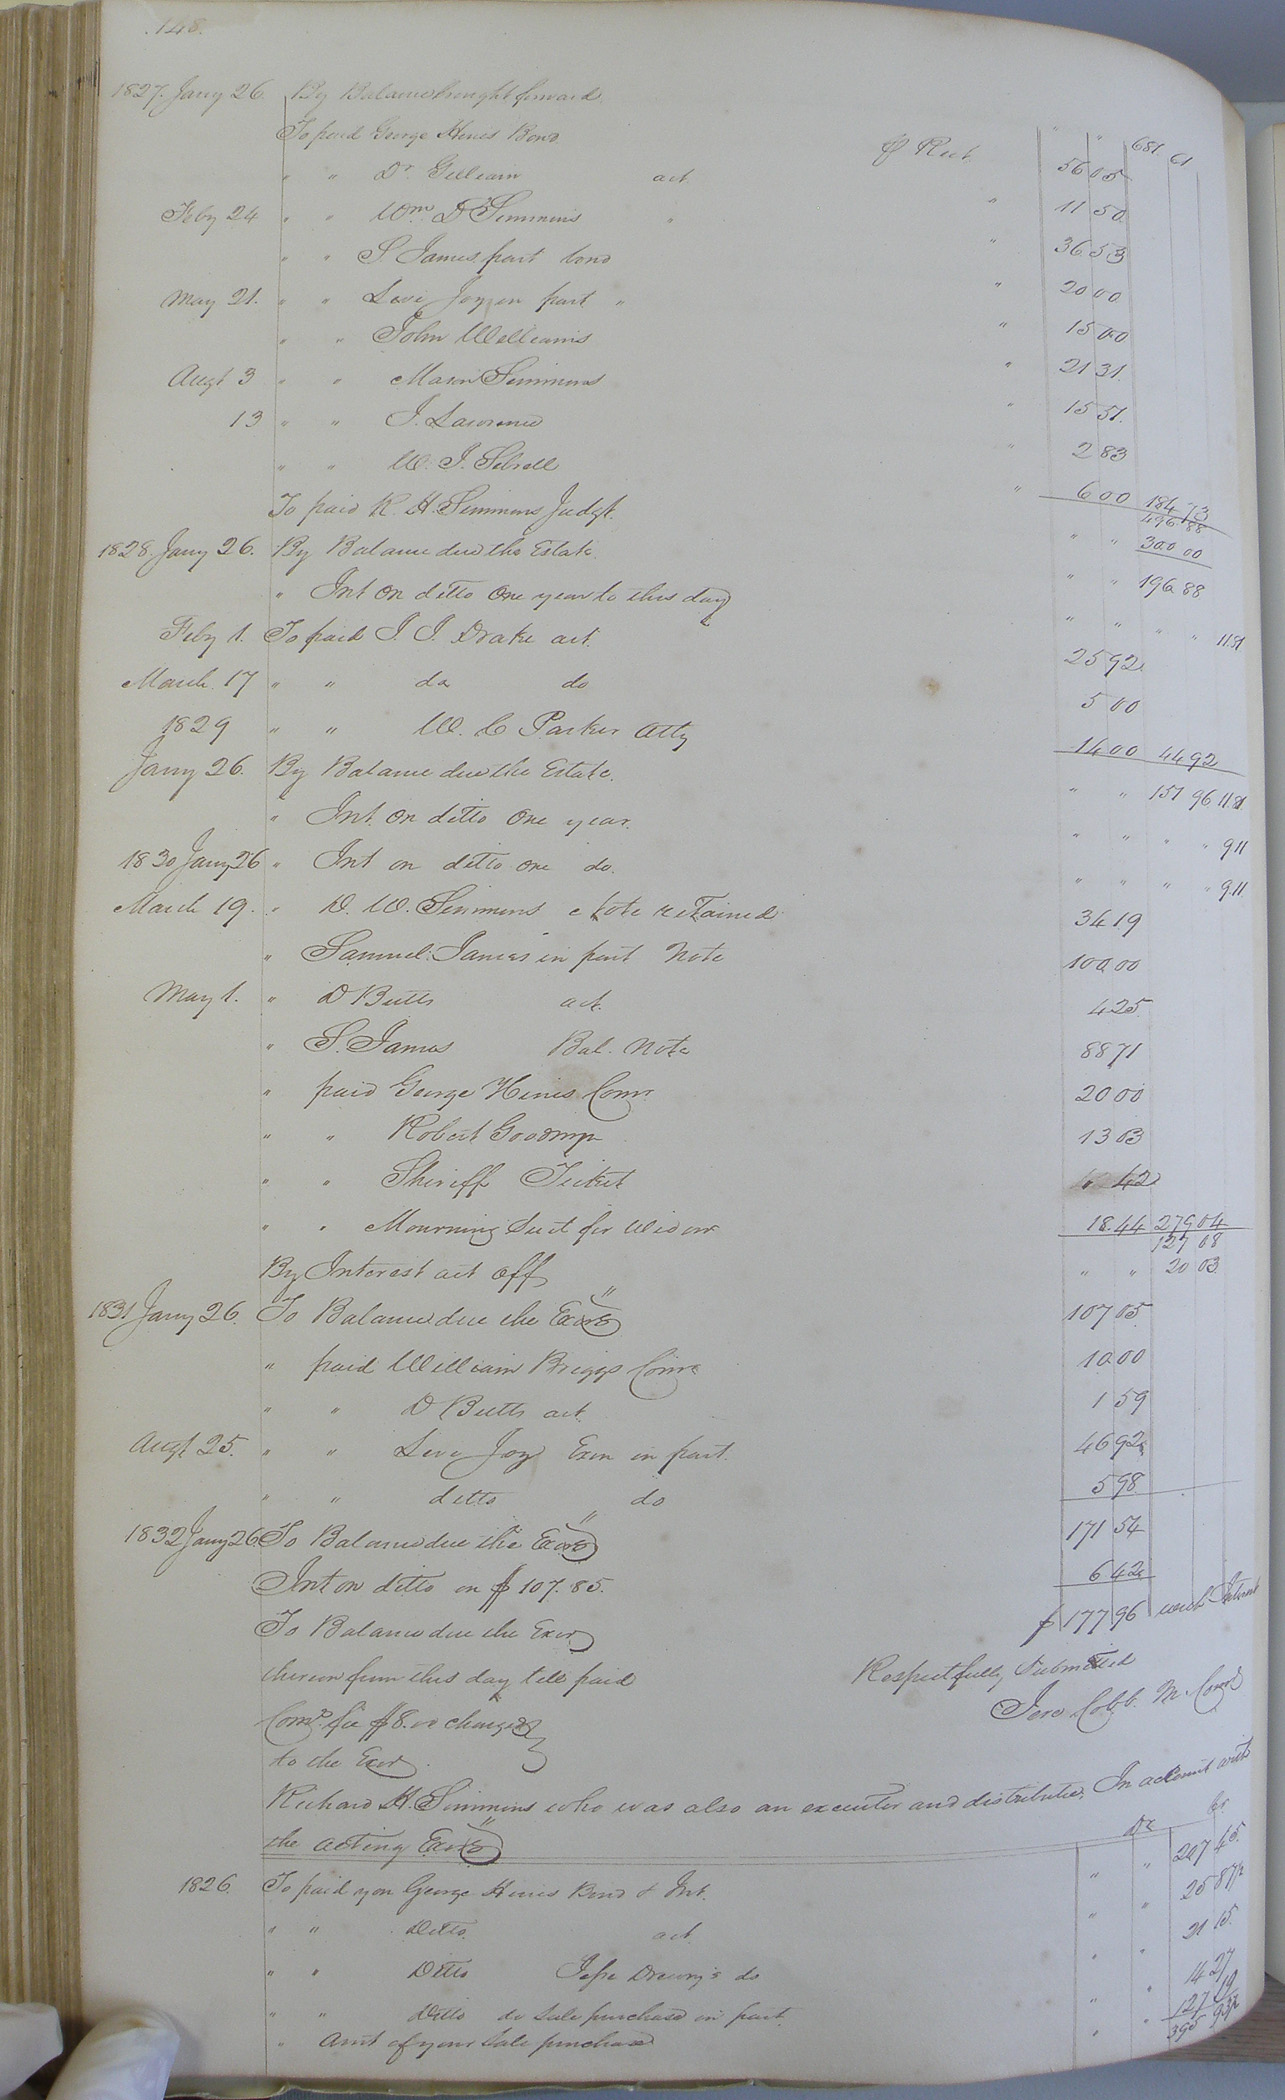 148.
1827. Jany 26. By Balance brought forward " " 681 61
To paid George Hines Bond pr Rect. 56 05
" " Dr. Gilliam act. " 11 50
Feby 24 " " Wm. D Simmons " " 36 53
" " S. James part bond " 20 00
May 21. " " Levi Joyner part " " 15 00
" " John Williams " 21 31
Augt 3 " " Mason Simmons " 15 51
13 " " J. Lawrence " 2 83
" " W. J. Sebrell "
To paid R. H. Simmons Judgt. 6 00 184 73
496 88
300 00
1828. Jany 26. By Balance due the Estate " " 196 88
" Int on ditto one year to this day " " " " 11.81
Feby 1. To paid J. J. Drake act. 25 92
March 17 " " do do 5 00
1829 " " W. C Parker Atty 14 00 44 92
Jany 26. By Balance due the Estate. " " 151 96 11.81
" Int. on ditto one year. " " " " 9 11
1830 Jany 26 " Int on ditto one do. " " " " 9.11
March 19. " D. W. Simmons Note retained 34 19
" Samuel James in part Note 100 00
May 1. " D Butts act. 4 25
" S. James Bal. Note 88 71
" paid George Hines Comr. 20 00
" " Robert Goodwyn 13 03
" " Sheriff Ticket " 42
" " Mourning Suit for Widow 18.44 279 04
127 08
By Interest act off " " 20 03
1831 Jany 26. To Balance due the Exor 107 05
" paid William Briggs Comr 10 00
" " D Butts act. 1 59
Augt 25. " " Levi Joy Exor in part. 46 92
" " ditto do 5 98
1832 Jany 26 To Balance due the Exor 171 54
Int on ditto on $107.85. 6 42
To Balance due the Exor $177 96 with Interest
thereon from this day till paid
Respectfully Submitted
Comr. fee $8.00 charged
Jere Cobb. M. Comr
to the Exor.
Richard H. Simmons who was also an executor and distributee, In account with
the acting Exor Dr Cr
1826. To paid you George Hines Bond & Int. " " 207 45
" " Ditto act. " " 25 87½
" " Ditto Jesse Drewry's do " " 21 15
" " Ditto do Sale purchase in part " " 14 27
" Amt of your Sale purchase " " 127 19
395 93½